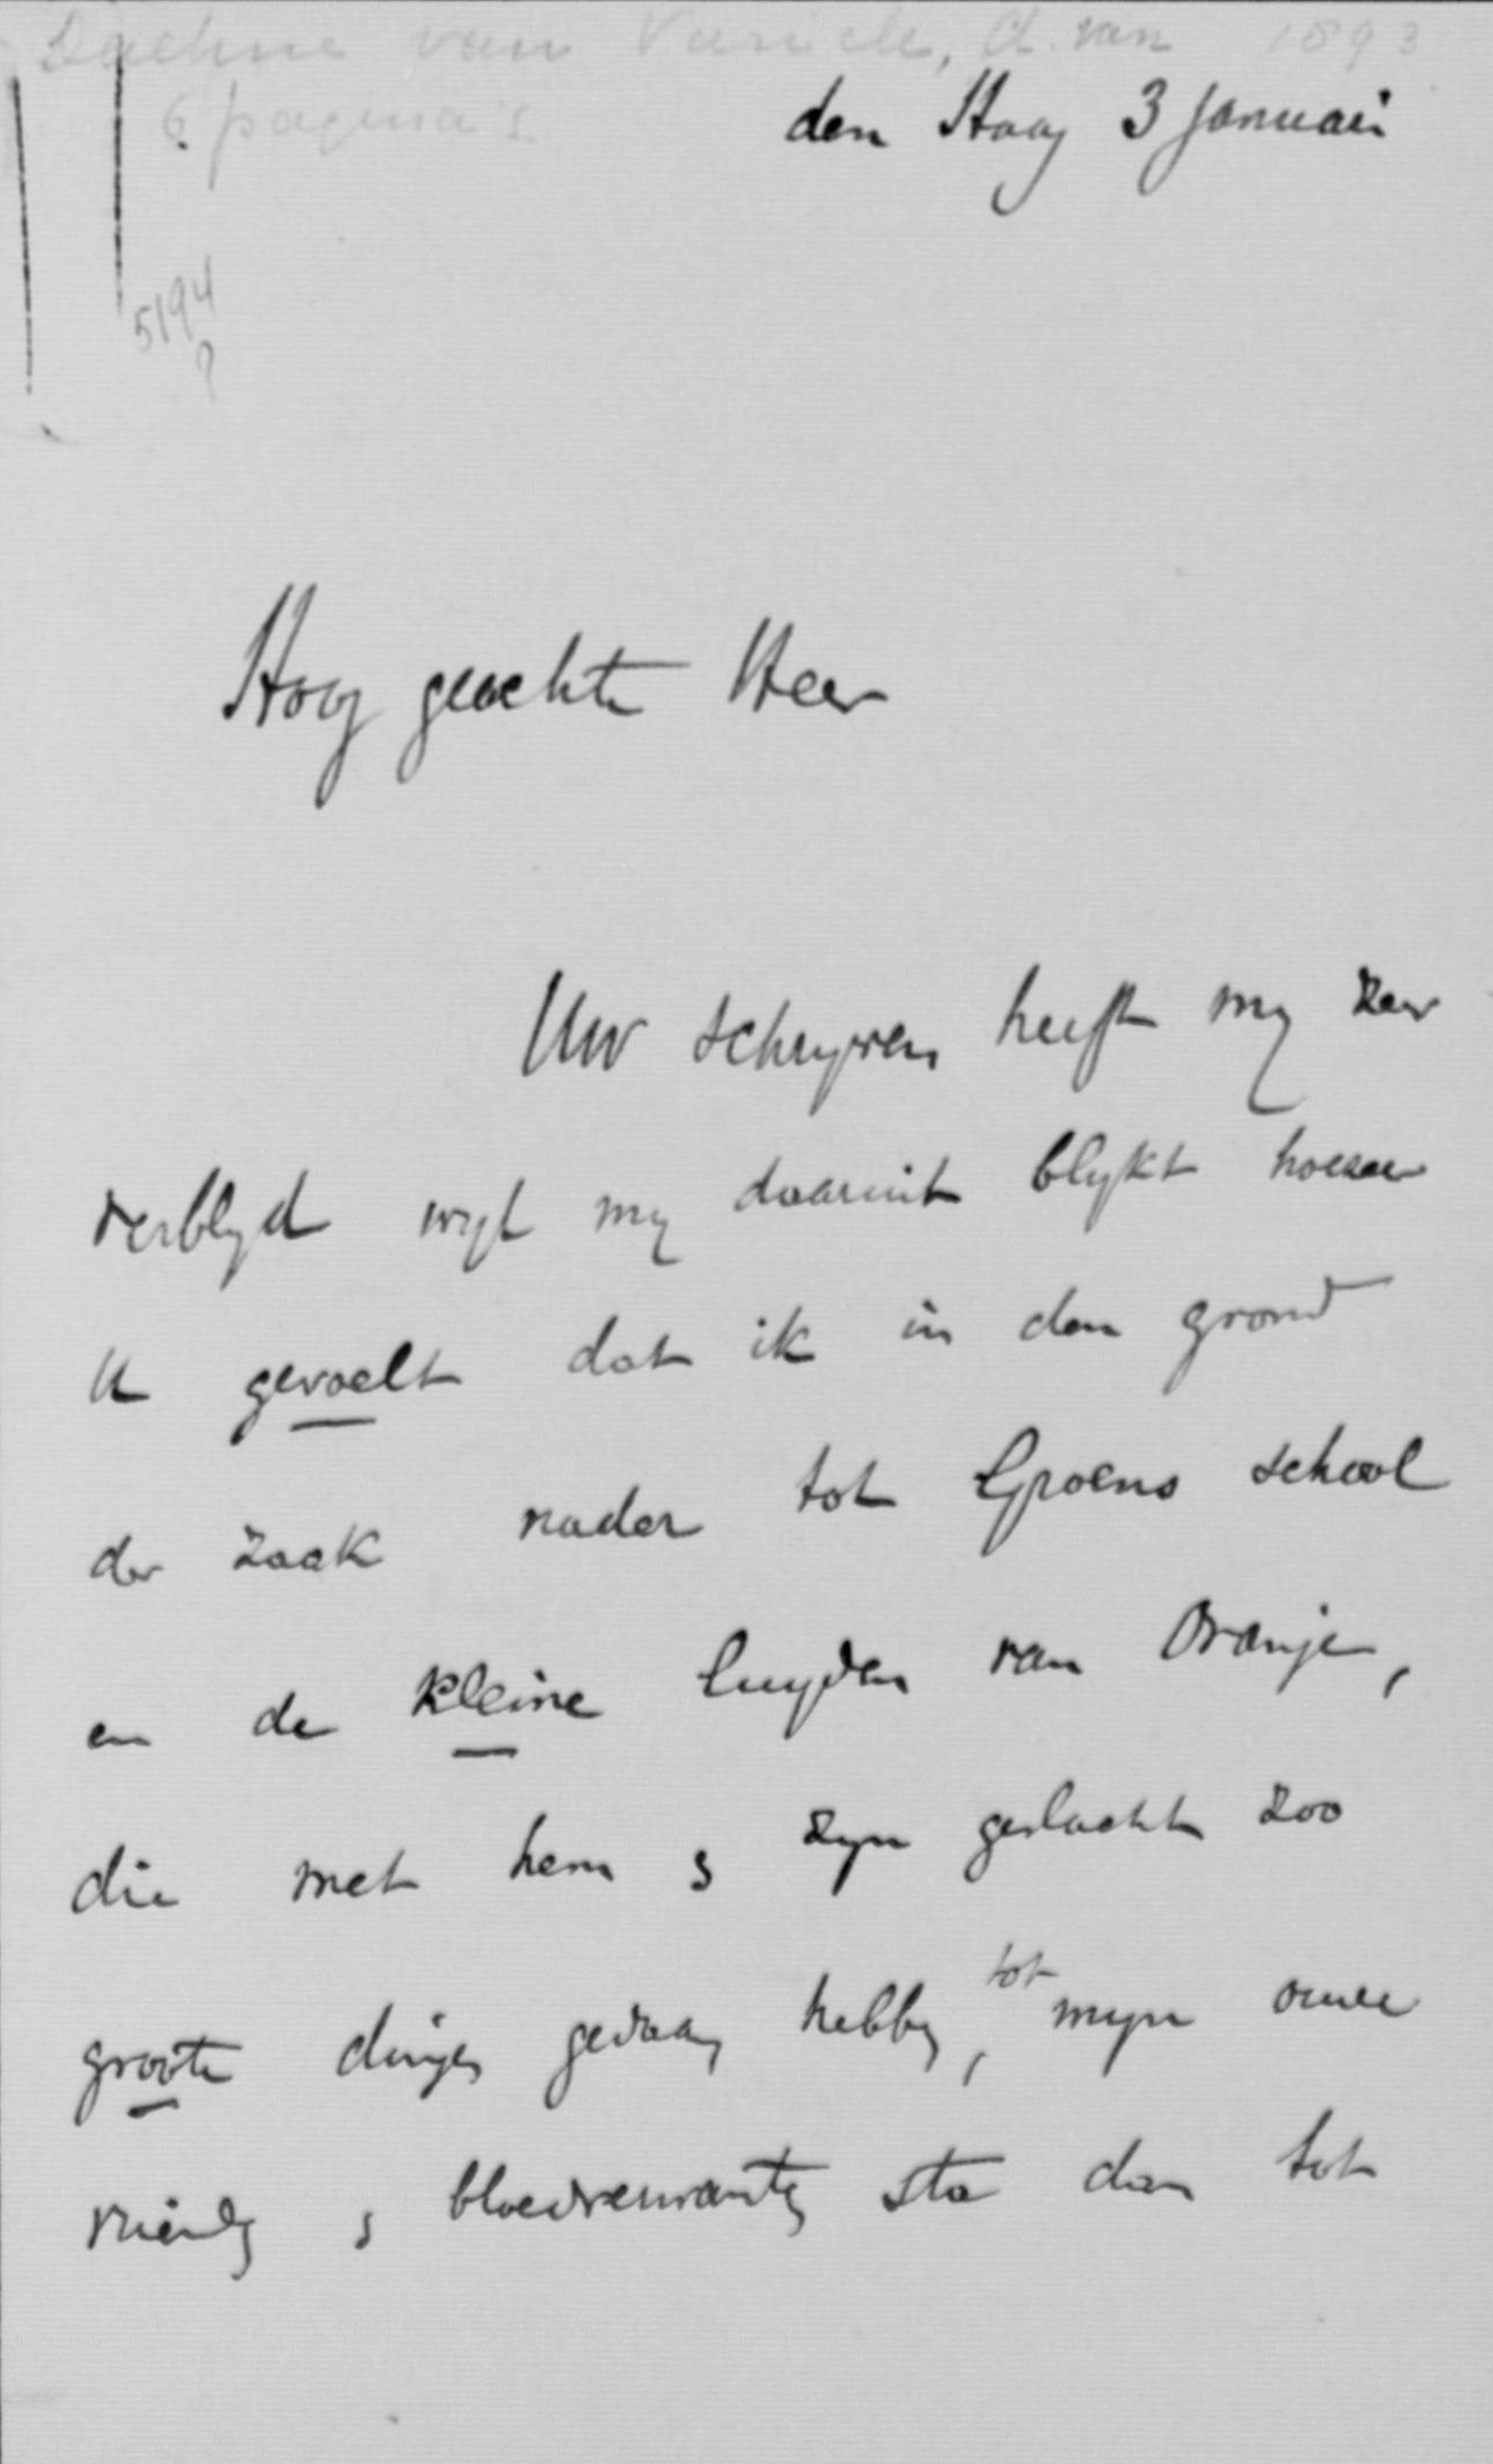 Daehne van Varick, A. van 1893
6 pagina's
den Haag 3 Januari
5194
?
Hoog geachte Heer
Uw schryven heeft my zeer
verblyd wyl my daaruit blykt hoezeer
U gevoelt dat ik in den grond
der zaak nader tot Groens school
en de kleine luyden van Oranje,
die met hem & zyn geslacht zoo
groote dingen gedaan hebben, tot myn oude
vrienden & bloedverwanten sta dan tot